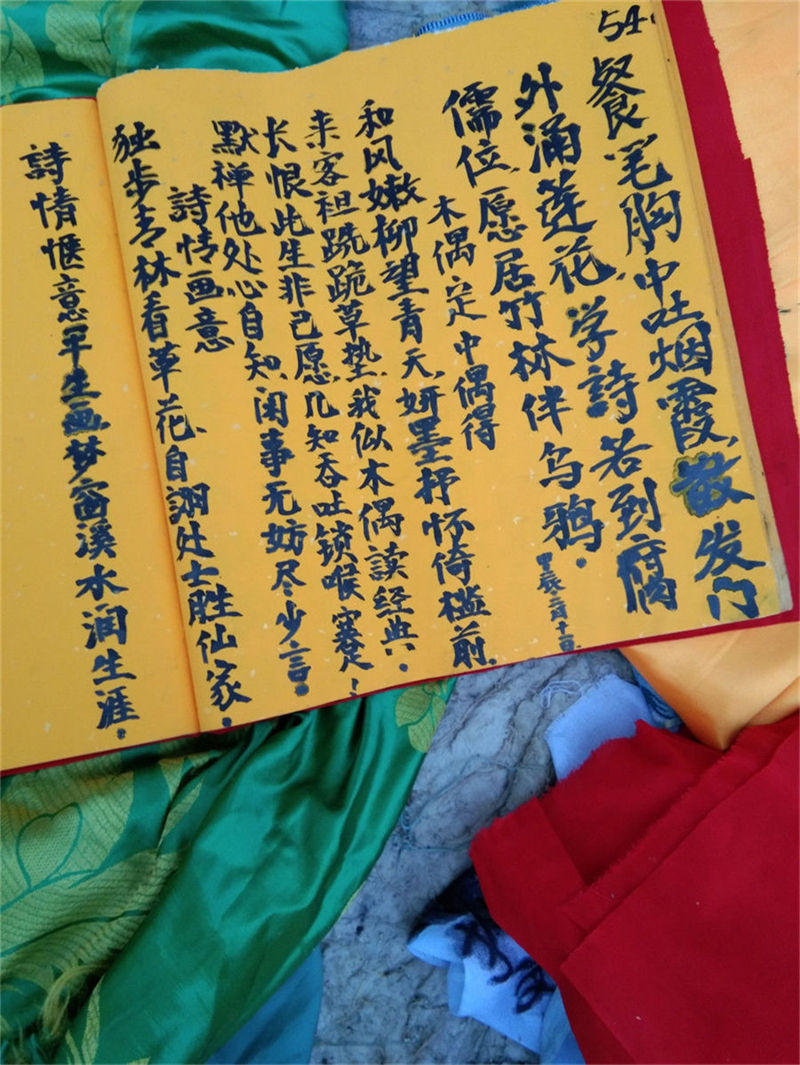 54
餐笔胸中吐烟霞,散发门
外涌莲花,学詩若到腐
儒位,愿居竹林伴乌鸦。
甲辰二月十二日
木偶定中偶得
和风嫩柳望青天,妍墨抒怀倚槛前,
来客袒跣跪草垫,我似木偶读经典。
长恨此生非己愿,几知吞吐锁喉
默禅他处心自知,闲事无妨尽少言。
詩情画意
独步青林看草花,自謝处士胜仙家。
詩情惬意平生画梦窗溪水润生涯。